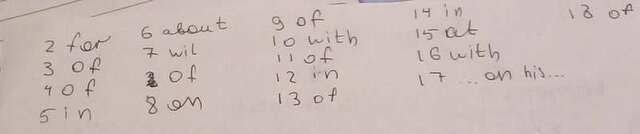 2 for
3 of
4 of
5 in
6 about
7 wil
8 of
8 on
9 of
10 with
11 of
12 in
13 of
14 in
15 at
16 with
17 ... on his...
18 of